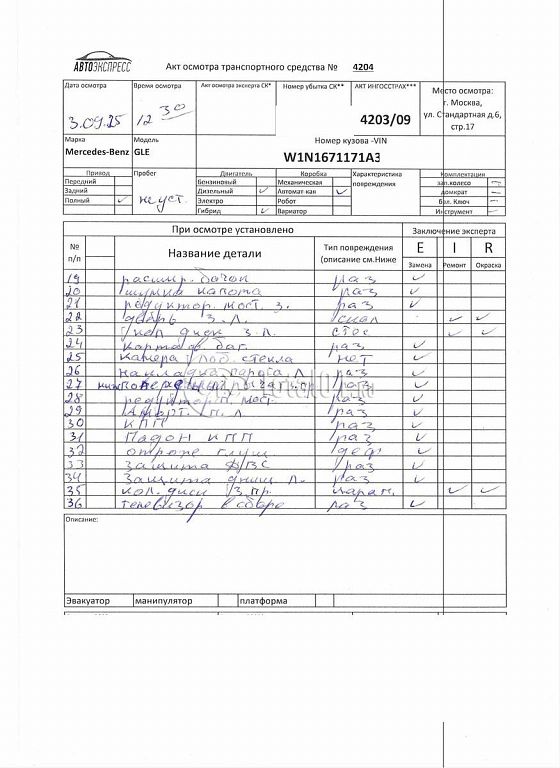 АВТОЭКСПРЕСС
Акт осмотра транспортного средства № 4204
Дата осмотра
Время осмотра
Акт осмотра эксперта СК*
Номер убытка СК**
АКТ ИНГОССТРАХ***
Место осмотра:
г. Москва,
ул. Стандартная д.6,
стр.17
3.09.25
12 30
4203/09
Марка
Модель
Номер кузова -VIN
Mercedes-Benz
GLE
W1N1671171A3
Привод
Пробег
Двигатель
Коробка
Характеристика повреждения
Комплектация
Передний
Бензиновый
Механическая
зап.колесо –
Задний
Дизельный ✓
Автомат кая ✓
домкрат –
Полный ✓
не уст.
Электро
Робот
Бал. Ключ –
Гибрид ✓
Вариатор
Инструмент ✓
При осмотре установлено
Заключение эксперта
№ п/п
Название детали
Тип повреждения (описание см.Ниже
E
I
R
Замена
Ремонт
Окраска
19 расшир. бачок раз ✓
20 шумка капота раз ✓
21 редуктор. мост. з. раз ✓
22 дверь З.Л. скол ✓ ✓
23 кол диск З.Л. стос ✓ ✓
24 карта дв. баг. раз ✓
25 камера лоб. стекла нет ✓
26 накладка порога Л раз ✓
27 раз ✓
28 редуктор п. мост. раз ✓
29 Аморт. п.Л раз ✓
30 КПП раз ✓
31 Падон КПП раз ✓
32 глуш. деф ✓
33 защита ДВС раз ✓
34 Защита днищ Л. раз ✓
35 кол. диск З.пр. царап. ✓ ✓
36 телевизор в сборе раз ✓
Описание:
Эвакуатор
манипулятор
платформа